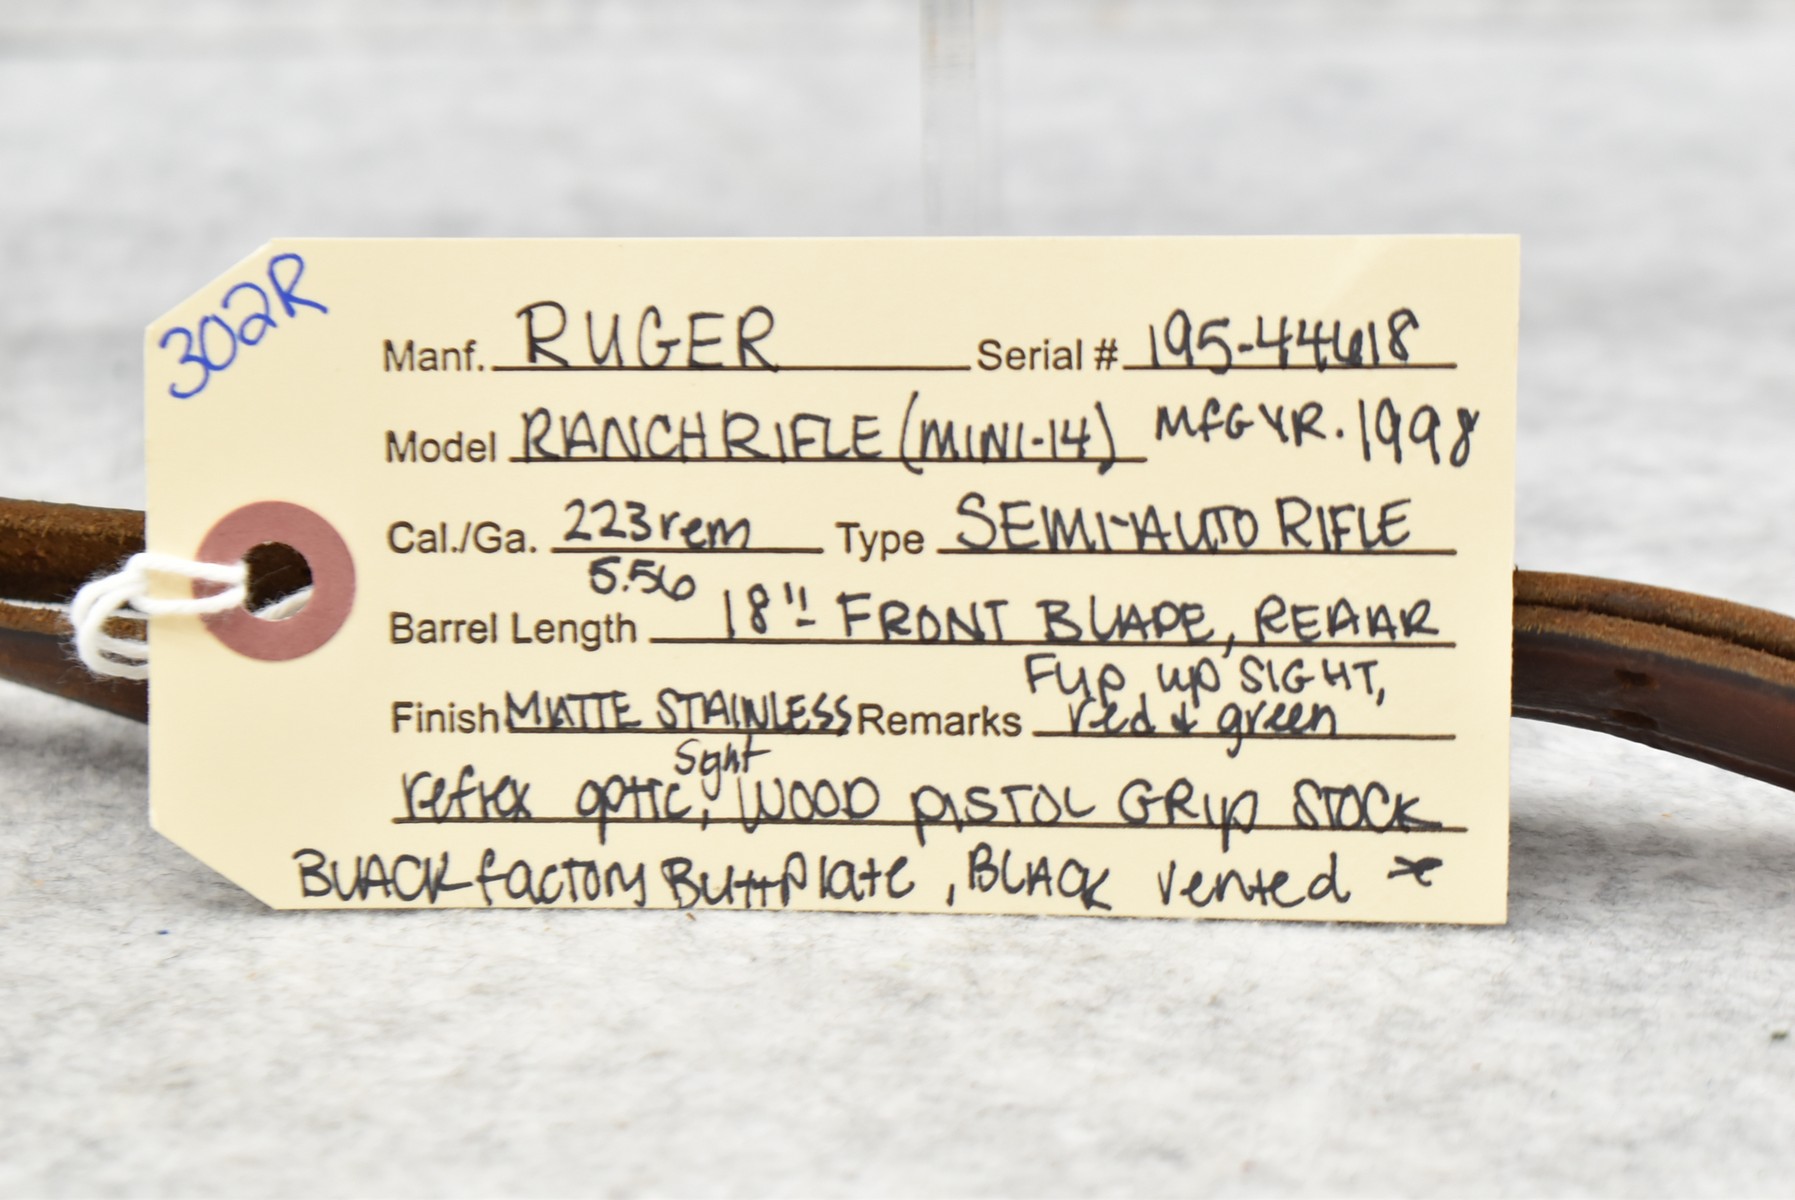 302R
Manf. RUGER Serial # 195-44618
Model RANCH RIFLE (MINI-14) MFG YR. 1998
Cal./Ga. 223 rem Type SEMI-AUTO RIFLE
5.56
Barrel Length 18" - FRONT BLADE, REAR
Flip up SIGHT,
Finish MATTE STAINLESS Remarks red & green
Sght
reflex optic, WOOD PISTOL GRIP STOCK
BLACK factory Buttplate, BLACK vented *